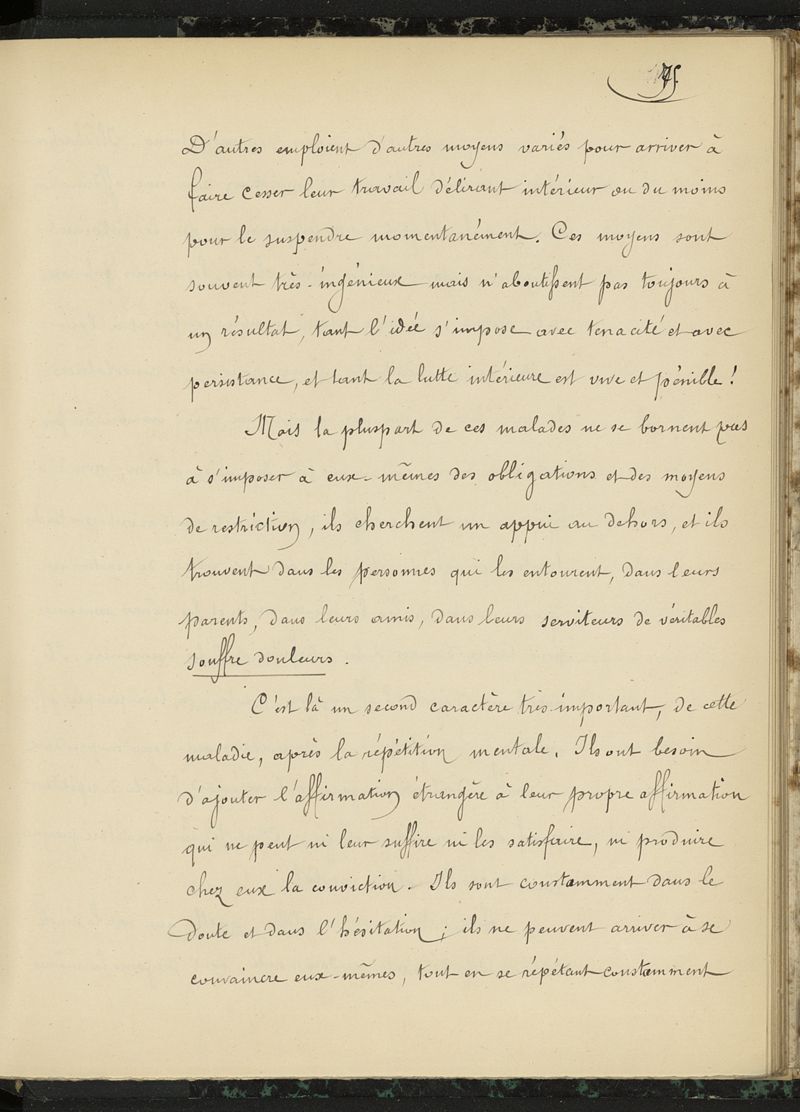 75.
D'autres emploient d'autres moyens variés pour arriver à
faire cesser leur travail délirant intérieur ou du moins
pour le suspendre momentanément. Ces moyens sont
souvent très-ingénieux mais n'aboutissent pas toujours à
un résultat, tant l'idée s'impose avec tenacité et avec
persistance, et tant la lutte intérieure est vive et pénible !
Mais la pluspart de ces malades ne se bornent pas
à s'imposer à eux-mêmes des obligations et des moyens
de restriction, ils cherchent un appui au dehors, et ils
trouvent dans les personnes qui les entourent, dans leurs
parents, dans leurs amis, dans leurs serviteurs de véritables
souffre douleurs.
C'est là un second caractère très-important, de cette
maladie, après la répétition mentale. Ils ont besoin
d'ajouter l'affirmation étrangère à leur propre affirmation
qui ne peut ni leur suffire ni les satisfaire, ni produire
chez eux la conviction. Ils sont constamment dans le
doute et dans l'hésitation ; ils ne peuvent arriver à se
convaincre eux-mêmes, tout en se répétant constamment